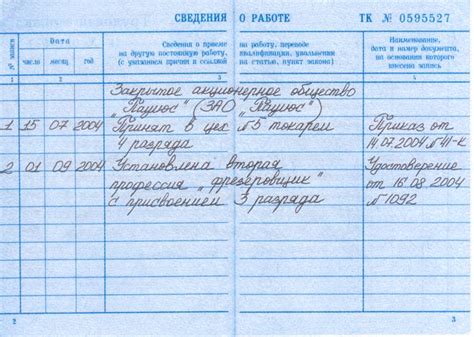 СВЕДЕНИЯ О РАБОТЕ ТК № 0595527
№ записи Дата Сведения о приеме на работу, переводе Наименование,
на другую постоянную работу, квалификации, увольнении дата и номер документа,
число месяц год (с указанием причин и ссылкой на статью, пункт закона) на основании которого внесена запись
1 2 3 4
Закрытое акционерное общество
"Паулюс" (ЗАО "Паулюс")
1 15 07 2004 Принят в цех №5 токарем Приказ от
4 разряда 14.07.2004 №41-К
2 01 09 2004 Установлена вторая Удостоверение
профессия "фрезеровщик" от 16.08.2004
с присвоением 3 разряда №1092
2 3